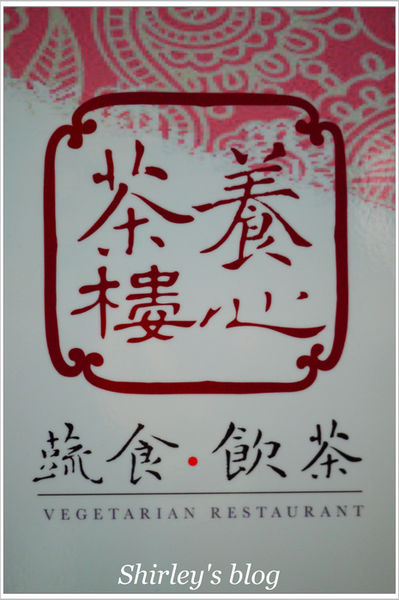 養心
茶樓
蔬食·飲茶
VEGETARIAN RESTAURANT
Shirley's blog